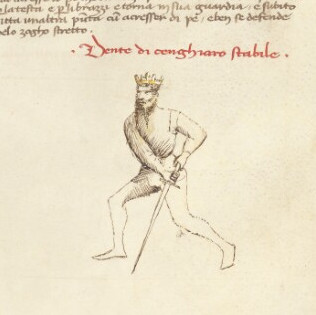 la testa e p li brazzi e torna in sua guardia, e subito
itta un altra punta cū acresser di pe, e ben se defende
elo zogho stretto.
Dente di cenghiaro stabile.